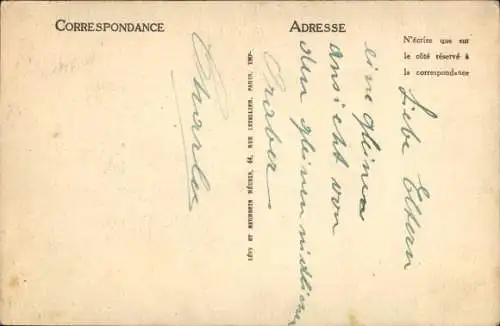 CORRESPONDANCE
ADRESSE
N'écrire que sur
le côté réservé à
la correspondance
LÉVY ET NEURDEIN RÉUNIS, 44, RUE LETELLIER, PARIS, IMP.
Liebe Eltern
eine gleine
ansicht von
den gleinen niedlichen
Graber
Charles